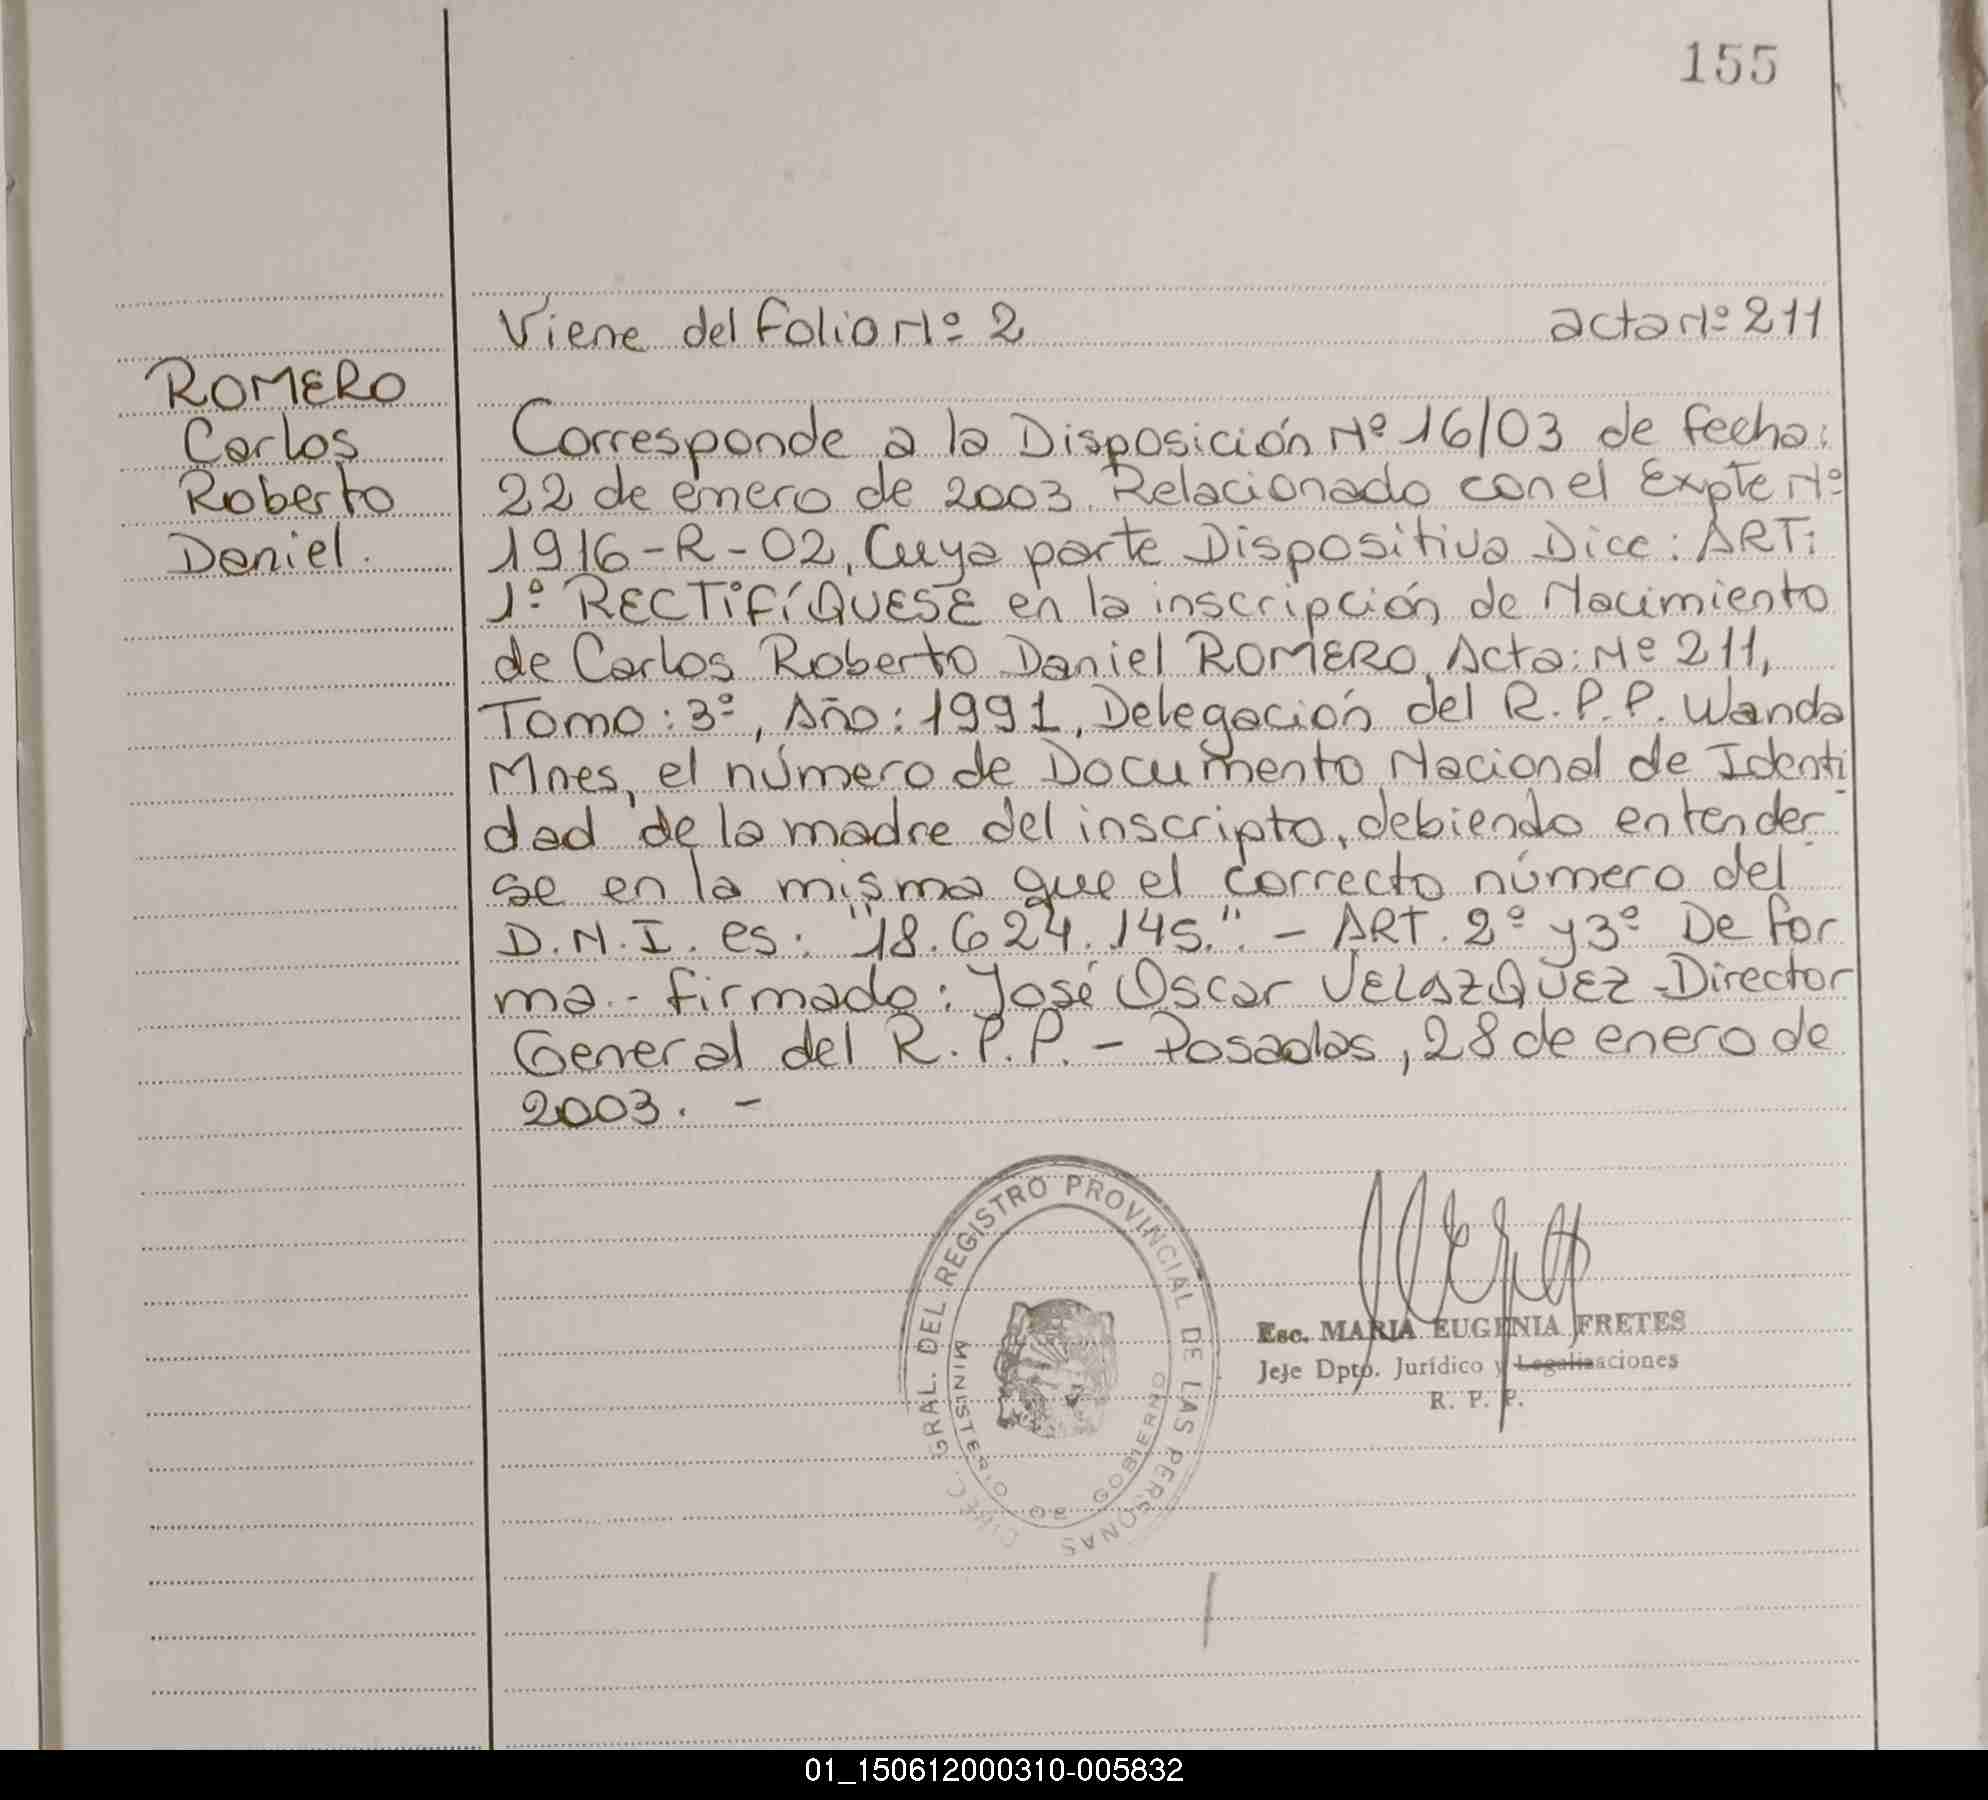 155
Viene del folio Nº 2 acta Nº 211
ROMERO
Carlos
Roberto
Daniel.
Corresponde a la Disposición Nº 16/03 de fecha:
22 de enero de 2003. Relacionado con el Expte Nº
1916-R-02, Cuya parte Dispositiva Dice: ART:
1º RECTIFÍQUESE en la inscripción de Nacimiento
de Carlos Roberto Daniel ROMERO, Acta: Nº 211,
Tomo: 3º, Año: 1991, Delegación del R.P.P. Wanda
Mnes, el número de Documento Nacional de Identi
dad de la madre del inscripto, debiendo entender-
se en la misma que el correcto número del
D.N.I. es: "18.624.145.". - ART. 2º y 3º De for
ma.- firmado: José Oscar VELAZQUEZ - Director
General del R.P.P. - Posadas, 28 de enero de
2003. -
DIREC. GRAL. DEL REGISTRO PROVINCIAL DE LAS PERSONAS
MINISTERIO DE GOBIERNO
Esc. MARIA EUGENIA FRETES
Jefe Dpto. Jurídico y Legalizaciones
R. P. P.
01_150612000310-005832